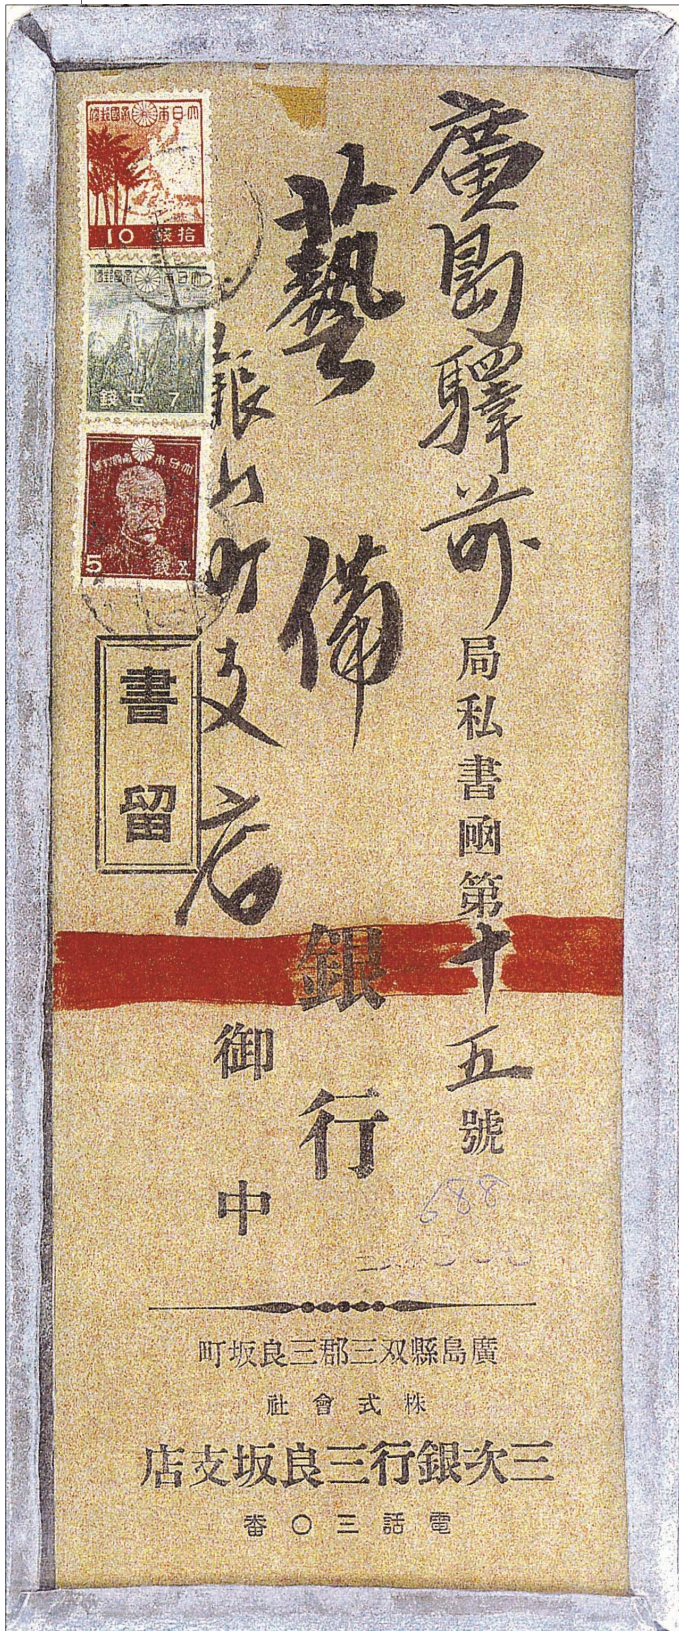 廣島驛前局私書凾第十五號
藝備銀行
銀山町支店
御中
書留
大日本帝國郵便
10 拾錢
大日本帝國郵便
7 七錢
大日本帝國郵便
5 五錢
688
廣島縣双三郡三良坂町
株式會社
三次銀行三良坂支店
電話三〇番